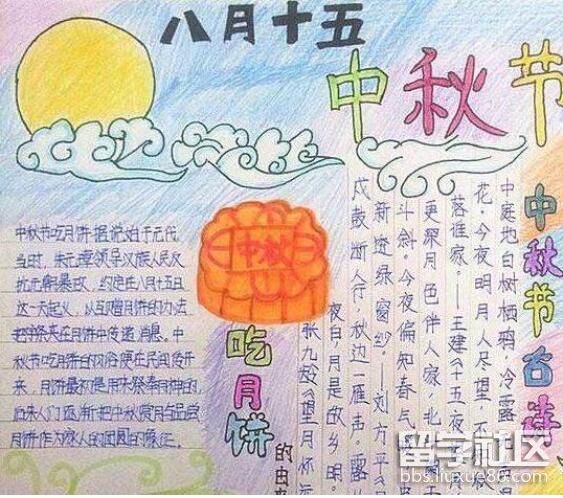 八月十五
中秋节
中秋节吃月饼据说始于元代
当时,朱元璋领导汉族人民反
抗元朝暴政,约定在八月十五日
这一天起义,以互赠月饼的办法
把字条夹在月饼中传递消息。中
秋节吃月饼的习俗便在民间传开
来,月饼最初是用来祭奉月神的
后来人门逐渐把中秋赏月与品尝
月饼作为家人的团圆的象征。
中秋
吃月饼
的由
中秋节古诗
中庭地白树栖鸦,冷露
花,今夜明月人尽望,不
落谁家。—王建《十五夜
更深月色伴人家,北
斗斜。今夜偏知春气
新透绿窗纱。—刘方平《
戍鼓断人行,秋边一雁声。露
夜白,月是故乡明。
张九龄《望月怀远
留学社区
bbs.liuxue86.com